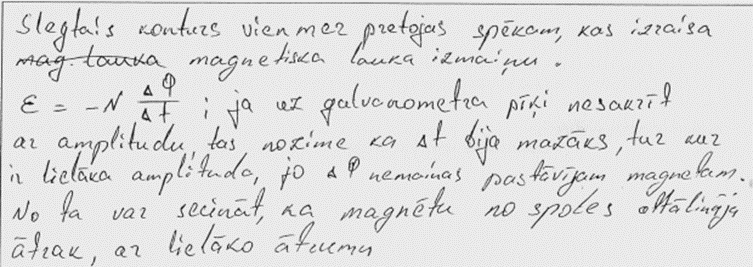 Slegtais konturs vienmēr pretojas spēkam, kas izraisa
mag. lauka magnetiska lauka izmaiņu.
ε = -N ΔΦ/Δt ; ja uz galvanometra pīķi nesakrīt
ar amplitudu, tas nozime ka Δt bija mazāks, tur kur
ir lielāka amplituda, jo ΔΦ nemainas pastāvījam magnetam.
No ta var secināt, ka magnētu no spoles attālināja
ātrak, ar lielāko ātrumu